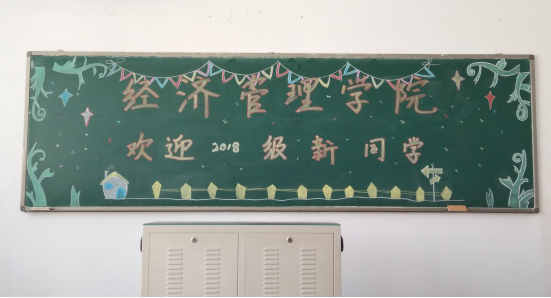 经济管理学院
欢迎 2018 级新同学